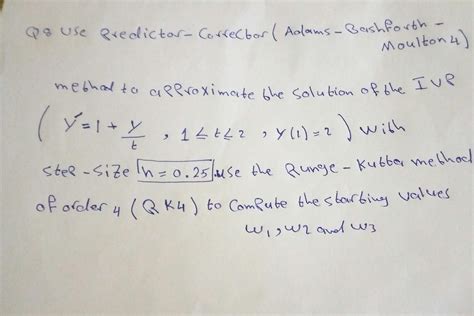 Q8 Use Predictor-Corrector (Adams-Bashforth-
Moulton 4)
method to approximate the solution of the IVP
( y' = 1 + y/t , 1 ≤ t ≤ 2 , y(1) = 2 ) with
step-size h = 0.25, use the Runge-Kutta method
of order 4 (RK4) to compute the starting values
w1, w2 and w3